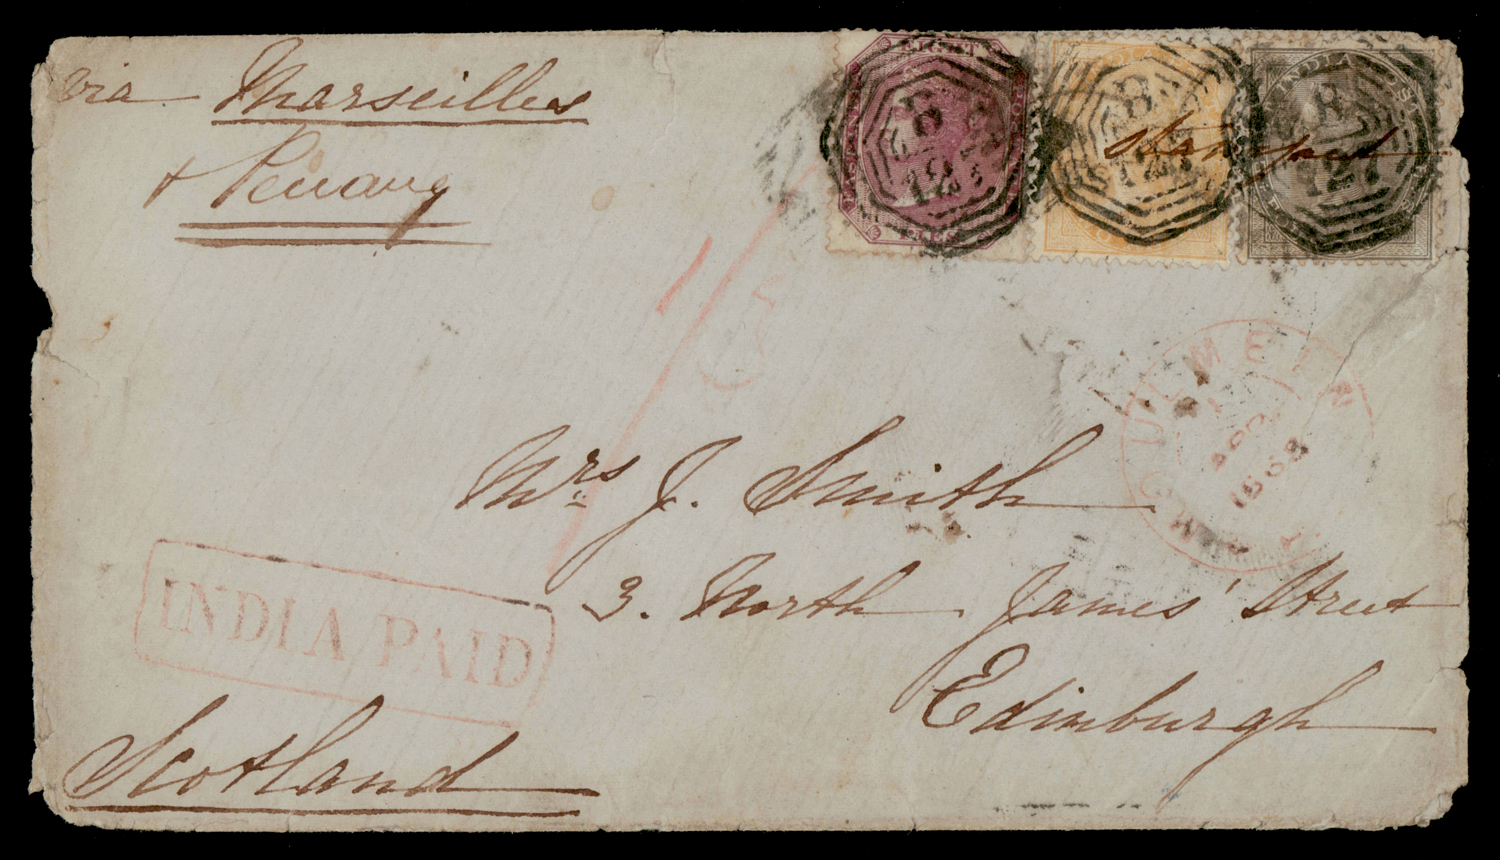 via Marseilles
& Penang
EIGHT
INDIA
B
127
stamped
MOULMEIN
1868
Mrs J. Smith
3. North James' Street
Edinburgh
INDIA PAID
Scotland